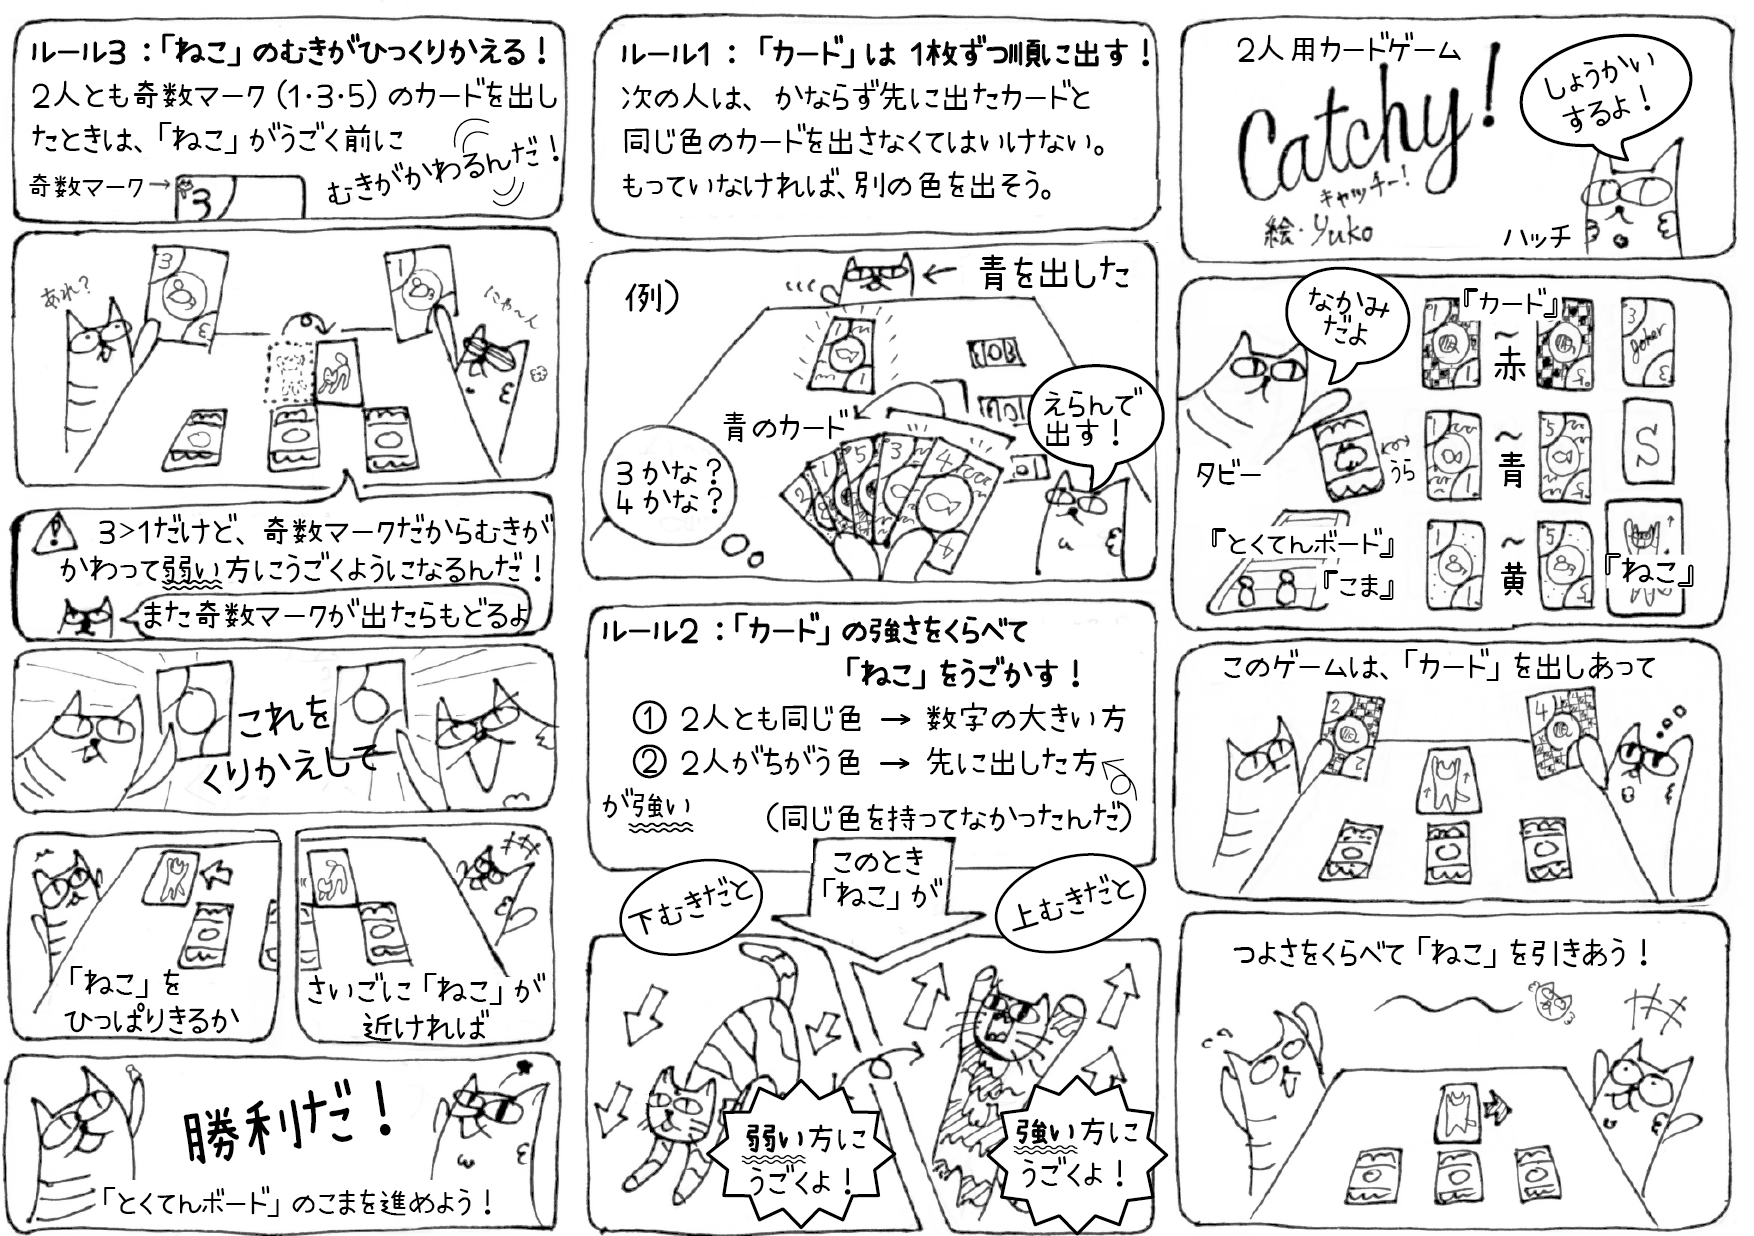 2人用カードゲーム
Catchy!
キャッチー!
絵・Yuko
しょうかい
するよ!
ハッチ
なかみ
だよ
タビー
うら
『カード』
1
1
〜
赤
5
3
Joker
3
1
1
〜
青
5
5
S
1
1
〜
黄
5
5
『ねこ』
『とくてんボード』
『こま』
このゲームは、「カード」を出しあって
2
2
4
つよさをくらべて「ねこ」を引きあう!
ルール1:「カード」は1枚ずつ順に出す!
次の人は、かならず先に出たカードと
同じ色のカードを出さなくてはいけない。
もっていなければ、別の色を出そう。
例)
← 青を出した
1
1
青のカード
3かな?
4かな?
2
1
5
3
4
4
えらんで
出す!
ルール2:「カード」の強さをくらべて
「ねこ」をうごかす!
① 2人とも同じ色 → 数字の大きい方
② 2人がちがう色 → 先に出した方
が強い
(同じ色を持ってなかったんだ)
このとき
「ねこ」が
下むきだと
上むきだと
弱い方に
うごくよ!
強い方に
うごくよ!
ルール3:「ねこ」のむきがひっくりかえる!
2人とも奇数マーク(1・3・5)のカードを出し
たときは、「ねこ」がうごく前に
むきがかわるんだ!
奇数マーク→
3
あれ?
3
3
1
3>1だけど、奇数マークだからむきが
かわって弱い方にうごくようになるんだ!
また奇数マークが出たらもどるよ
これを
くりかえして
「ねこ」を
ひっぱりきるか
さいごに「ねこ」が
近ければ
勝利だ!
「とくてんボード」のこまを進めよう!